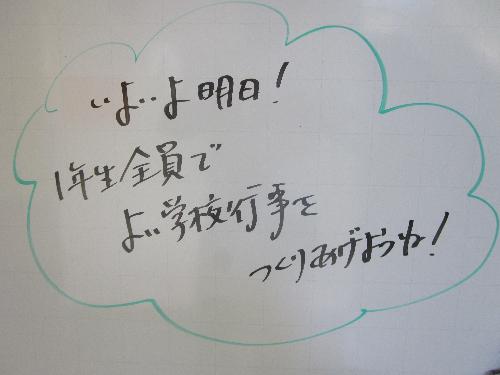 いよいよ明日!
1年生全員で
よい学校行事を
つくりあげようね!